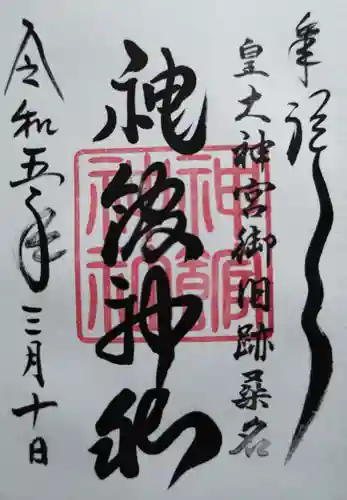 奉拝
皇大神宮御旧跡桑名
神館神社
神館神社
令和五年三月十日